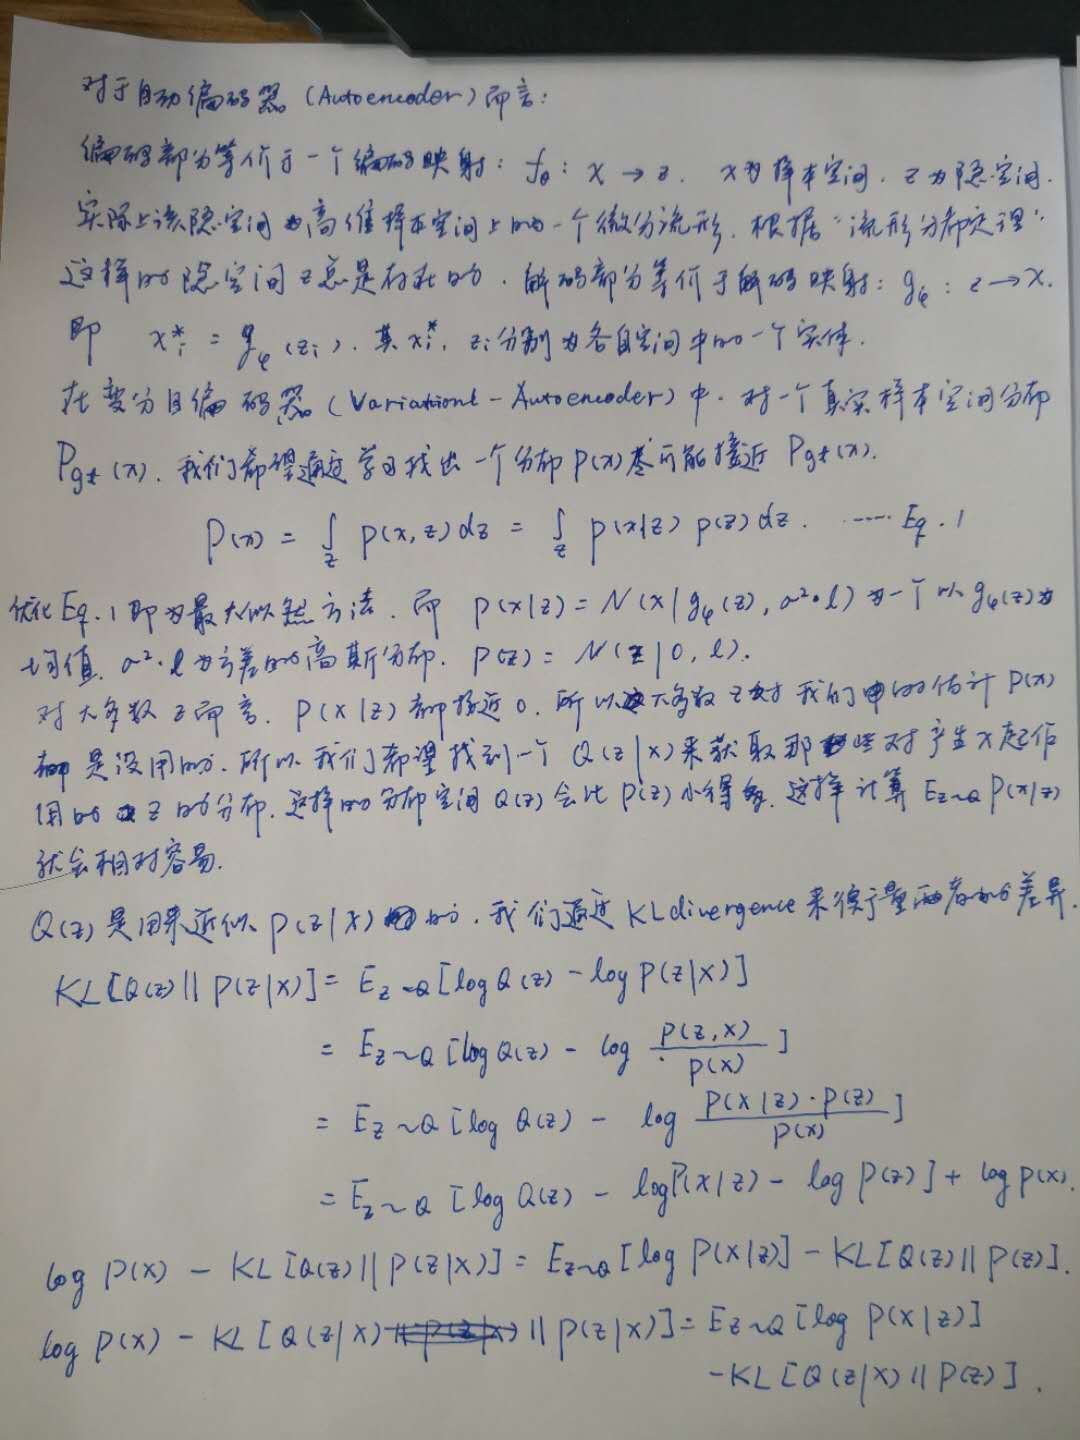 对于自动编码器 (Autoencoder) 而言:
编码部分等价于一个编码映射: fθ: x → z. x为样本空间. z为隐空间.
实际上该隐空间为高维样本空间上的一个微分流形. 根据“流形分布定理”
这样的隐空间z总是存在的. 解码部分等价于解码映射: gφ: z → x.
即 xi* = gφ(zi). 其xi*, zi分别为各自空间中的一个实体.
在变分自编码器 (Variationl-Autoencoder) 中. 对一个真实样本空间分布
Pgt(x). 我们都希望通过学习找出一个分布P(x)尽可能接近Pgt(x).
P(x) = ∫z P(x,z)dz = ∫z P(x|z) P(z)dz. ······ Eq.1
优化Eq.1即为最大似然方法. 而 P(x|z) = N(x|gφ(z), σ²·l) 为一个以gφ(z)为
均值. σ²·l为方差的高斯分布. P(z) = N(z|0, l).
对大多数z而言. P(x|z)都接近0. 所以大多数z对我们的估计P(x)
都是没用的. 所以我们希望找到一个Q(z|x)来获取那些对产生x起作
用的z的分布. 这样的分布空间Q(z)会比P(z)小得多. 这样计算Ez~Q P(x|z)
就会相对容易.
Q(z)是用来近似P(z|x)的. 我们通过KL divergence来衡量两者的差异.
KL[Q(z)||P(z|x)] = Ez~Q[logQ(z) - logP(z|x)]
= Ez~Q[logQ(z) - log P(z,x)/P(x)]
= Ez~Q[logQ(z) - log P(x|z)·P(z)/P(x)]
= Ez~Q[logQ(z) - logP(x|z) - logP(z)] + logP(x).
logP(x) - KL[Q(z)||P(z|x)] = Ez~Q[logP(x|z)] - KL[Q(z)||P(z)].
logP(x) - KL[Q(z|x)||P(z|x)] = Ez~Q[logP(x|z)]
-KL[Q(z|x)||P(z)].